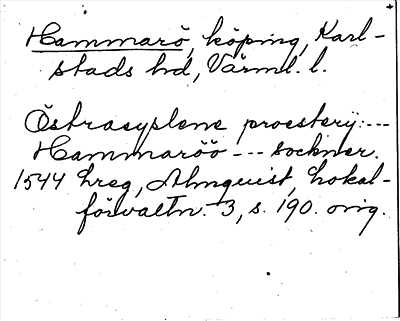 Hammarö, köping, Karl-
stads hd, Värml. l.
Östrasysslene proestery: ---
Hammaröö --- sockner.
1544 hreg, Almquist, Lokal-
förvaltn. 3, s. 190. orig.